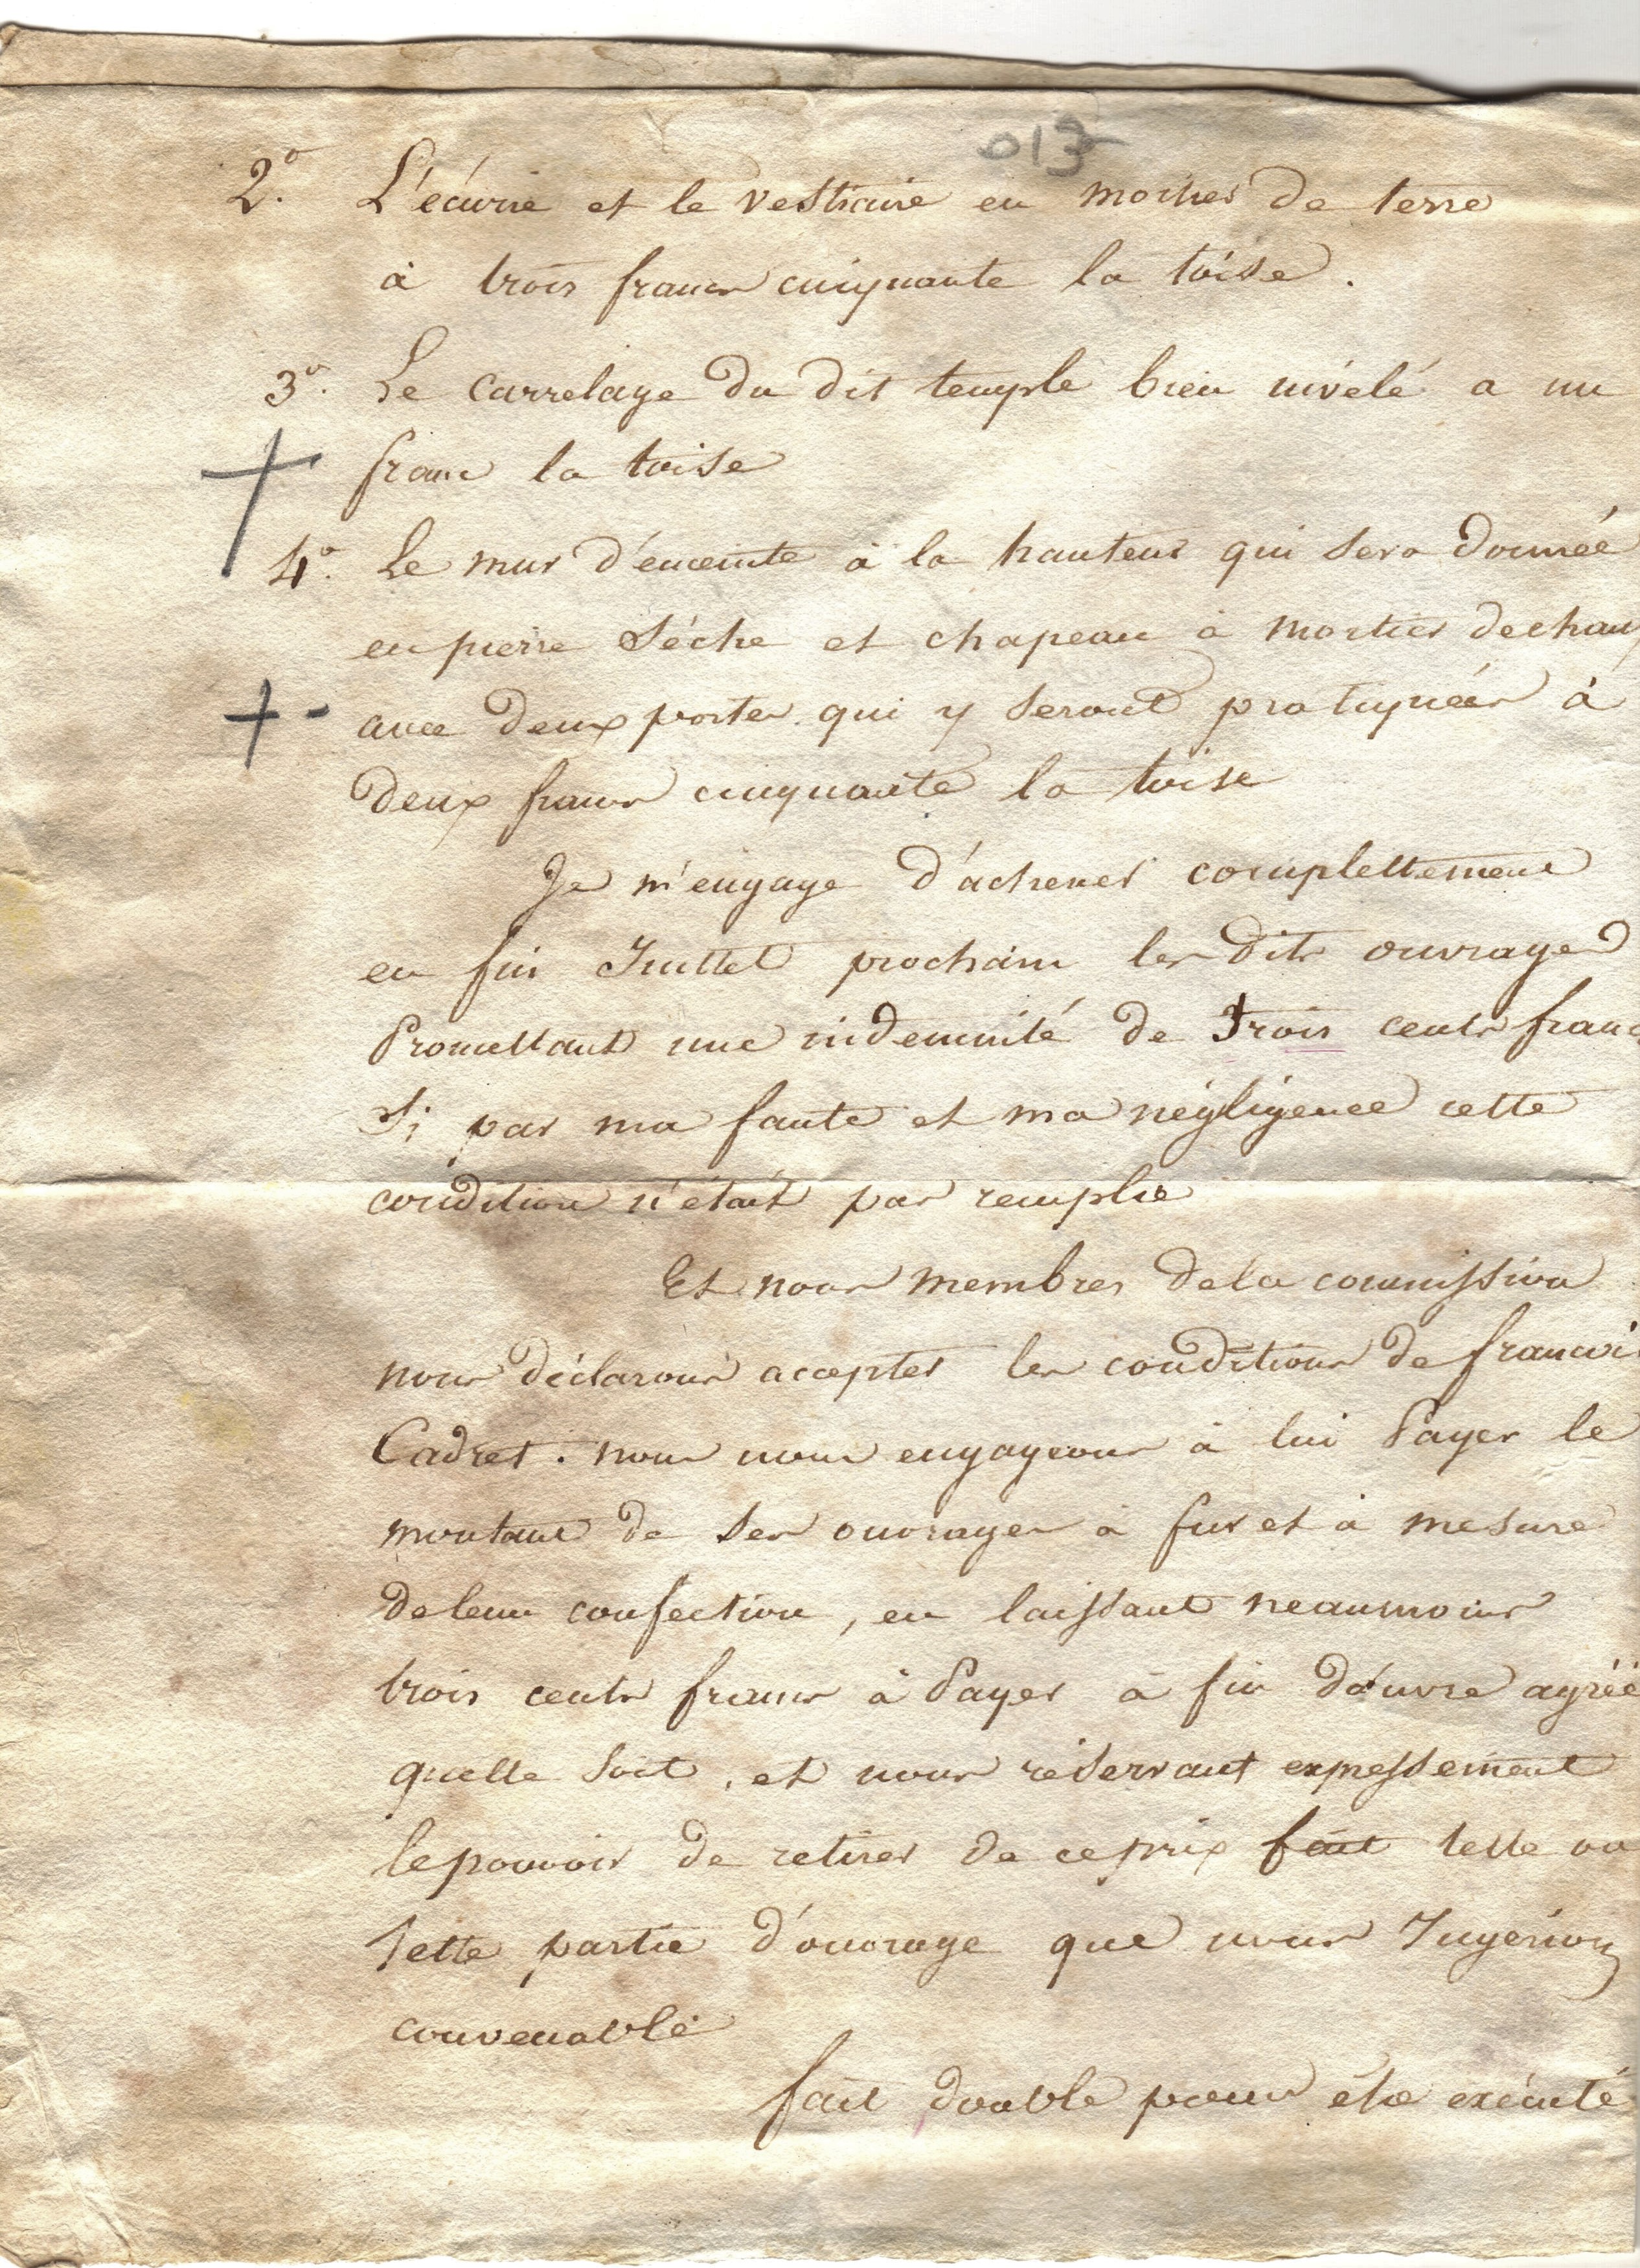 013
2.o L'écurie et le vestiaire en mortier de terre
à trois francs cinquante la toise.
3o. Le carrelage du dit temple bien nivelé a un
franc la toise
4o. Le mur d'enceinte à la hauteur qui sera donnée
en pierre séche et chapeau à mortier de chaux
avec deux portes qui y seront pratiquées à
deux francs cinquante la toise
Je m'engage d'achever complettement
en fin Juillet prochain les dits ouvrages
Promettant une indemnité de trois cents francs
Si par ma faute et ma négligence cette
condition n'était pas remplie
Et nous membres de la commission
nous déclarons accepter les conditions de francois
Cadret. nous nous engageons à lui Payer le
montant de ses ouvrages à fur et à mesure
de leur confection, en laissant neanmoins
trois cents francs à Payer à fin d'œuvre agréé
quelle soit, et nous réservant expressement
le pouvoir de retirer de ce prix fait telle ou
telle partie d'ouvrage que nous Jugerions
convenable
fait double pour être exécuté